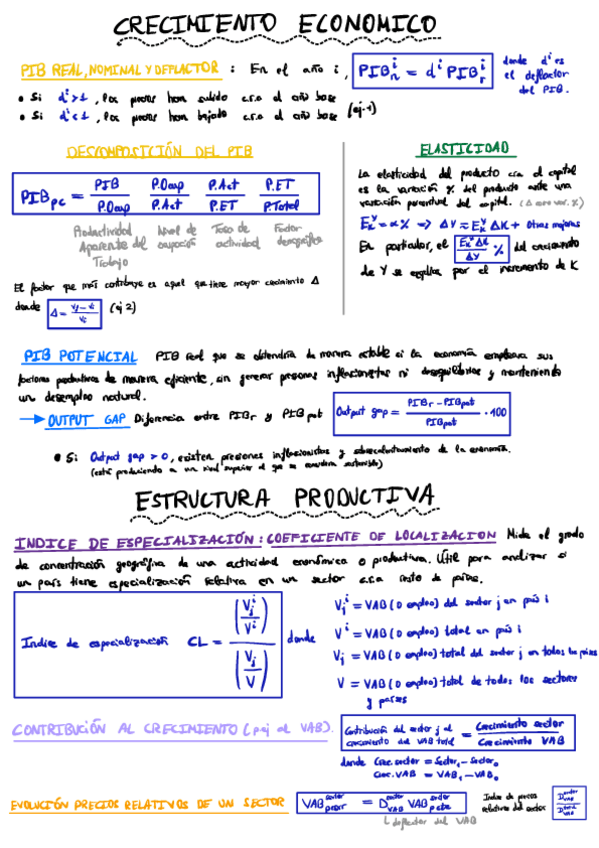 CRECIMIENTO ECONOMICO
PIB REAL, NOMINAL Y DEFLACTOR : En el año i, PIBⁱₙ = dⁱ PIBⁱᵣ donde dⁱ es
el deflactor
del PIB.
• Si dⁱ>1, los precios han subido c.r.a el año base
• Si dⁱ<1, los precios han bajado c.r.a el año base (ej.1)
DESCOMPOSICIÓN DEL PIB
PIBpc = PIB/P.Ocup P.Ocup/P.Act P.Act/P.ET P.ET/P.Total
Productividad Aparente del Trabajo
Nivel de ocupación
Tasa de actividad
Factor demográfico
El factor que más contribuye es aquel que tiene mayor crecimiento Δ
donde Δ = (ej 2)
ELASTICIDAD
La elasticidad del producto c.r.a el capital
es la variación % del producto ante una
variación porcentual del capital. (Δ son var. %)
Eₖʸ = α% => ΔY = Eₖʸ ΔK + Otras mejoras
En particular, el Eₖʸ ΔK/ΔY % del crecimiento
de Y se explica por el incremento de K
PIB POTENCIAL PIB real que se obtendría de manera estable si la economía empleara sus
factores productivos de manera eficiente, sin generar presiones inflacionistas ni desequilibrios y manteniendo
un desempleo natural.
→ OUTPUT GAP Diferencia entre PIBr y PIBpot Output gap = PIBr - PIBpot/PIBpot · 100
• Si: Output gap > 0, existen presiones inflacionistas y sobrecalentamiento de la economía.
(está produciendo a un nivel superior al que se considera sostenible)
ESTRUCTURA PRODUCTIVA
INDICE DE ESPECIALIZACIÓN : COEFICIENTE DE LOCALIZACION Mide el grado
de concentración geográfica de una actividad económica o productiva. Útil para analizar si
un país tiene especialización relativa en un sector c.r.a resto de países.
Indice de especialización CL = (Vⱼⁱ/Vⁱ)/(Vⱼ/V) donde
Vⱼⁱ = VAB (o empleo) del sector j en país i
Vⁱ = VAB (o empleo) total en país i
Vⱼ = VAB (o empleo) total del sector j en todos los países
V = VAB (o empleo) total de todos los sectores
y países
CONTRIBUCIÓN AL CRECIMIENTO (pej al VAB). Contribución del sector j al crecimiento del VAB total = Crecimiento sector/Crecimiento VAB
donde Crec. sector = Sector₁ - Sector₀
Crec. VAB = VAB₁ - VAB₀
EVOLUCIÓN PRECIOS RELATIVOS DE UN SECTOR VAB = D VAB Indice de precios relativos del sector
deflactor del VAB